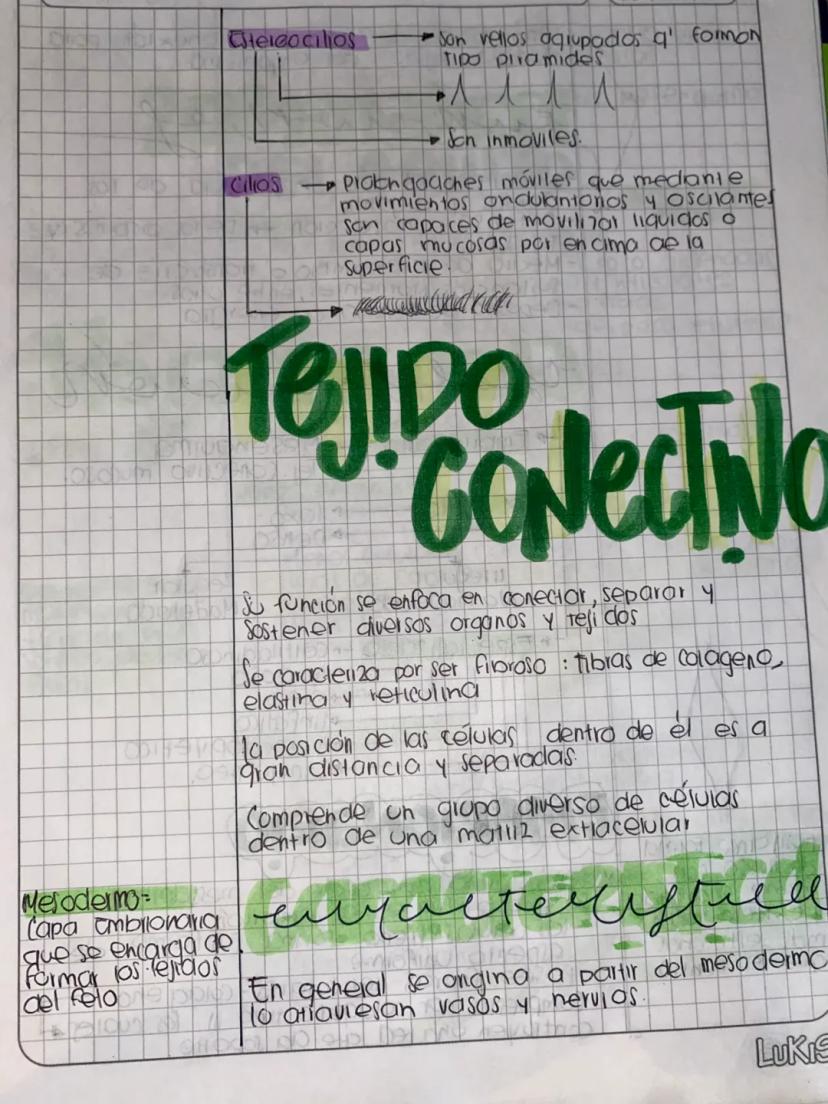 Estereocilios → Son vellos agrupados q' forman
tipo piramides
Son inmoviles.
Cilios → Prolongaciones móviles que mediante
movimientos ondulantorios y oscilantes
son capaces de movilizar liquidos o
capas mucosas por encima de la
superficie.
TEJIDO
CONECTIVO
Su función se enfoca en conectar, separar y
sostener diversos organos y tejidos
Se caracteriza por ser fibroso : fibras de colageno,
elastina y reticulina
la posición de las células dentro de él es a
gran distancia y separadas.
Comprende un grupo diverso de células
dentro de una matriz extracelular
Mesodermo=
Capa embrionaria
que se encarga de
formar los tejidos
del feto
En general se origina a partir del mesodermo
lo atraviesan vasos y nervios.
LUKIS